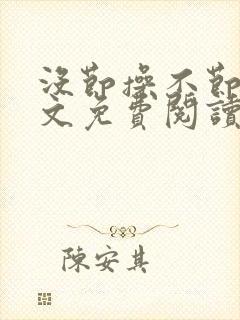 沒節操不節
文免費閱讀
陳安其